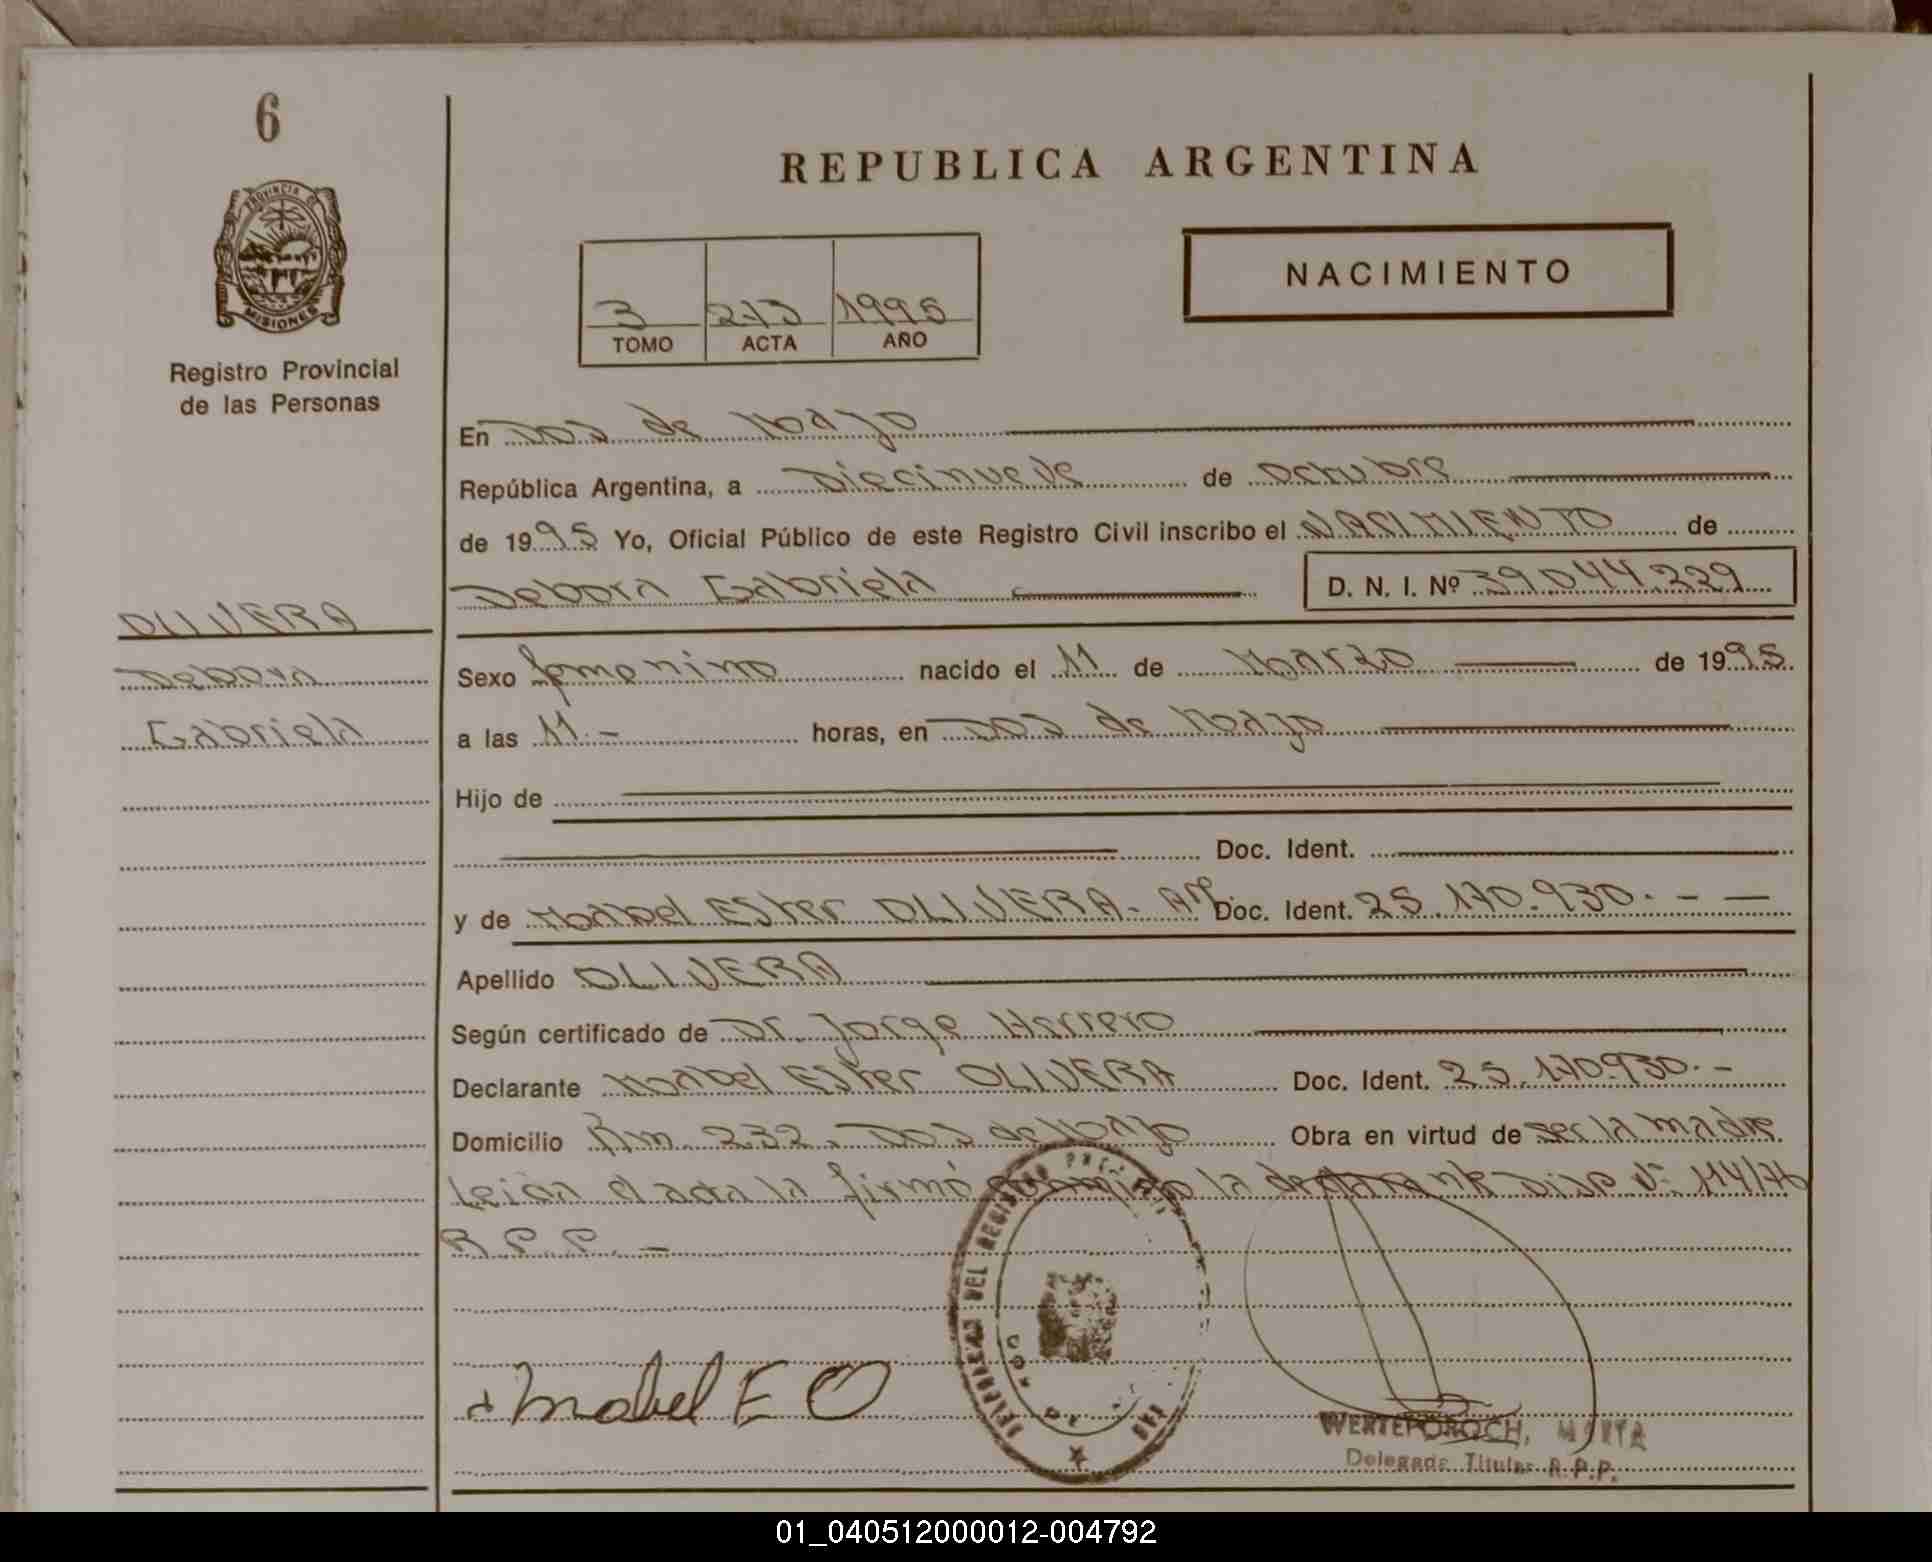 6
REPUBLICA ARGENTINA
PROVINCIA DE
MISIONES
Registro Provincial
de las Personas
NACIMIENTO
3 213 1995
TOMO ACTA AÑO
En Dos de Mayo
República Argentina, a Diecinueve de Octubre
de 1995 Yo, Oficial Público de este Registro Civil inscribo el NACIMIENTO de
Debora Gabriela D. N. I. Nº 39.044.229
OLIVERA
Debora
Gabriela
Sexo femenino nacido el 11 de Marzo de 1995.
a las 11.- horas, en Dos de Mayo
Hijo de
Doc. Ident.
y de Mabel Ester OLIVERA- Doc. Ident. 25.170.930.- -
Apellido OLIVERA
Según certificado de Dr. Jorge Herrero
Declarante Mabel Ester OLIVERA Doc. Ident. 25.170.930.-
Domicilio Km 232. Dos de Mayo Obra en virtud de ser la madre
Leida el acta la firmó conmigo la declarante Disp Nº 114/76
R.P.P.-
Mabel E O
DEL REGISTRO
WERTEPOROCH, MARTA
Delegada Titular R.P.P.
01_040512000012-004792